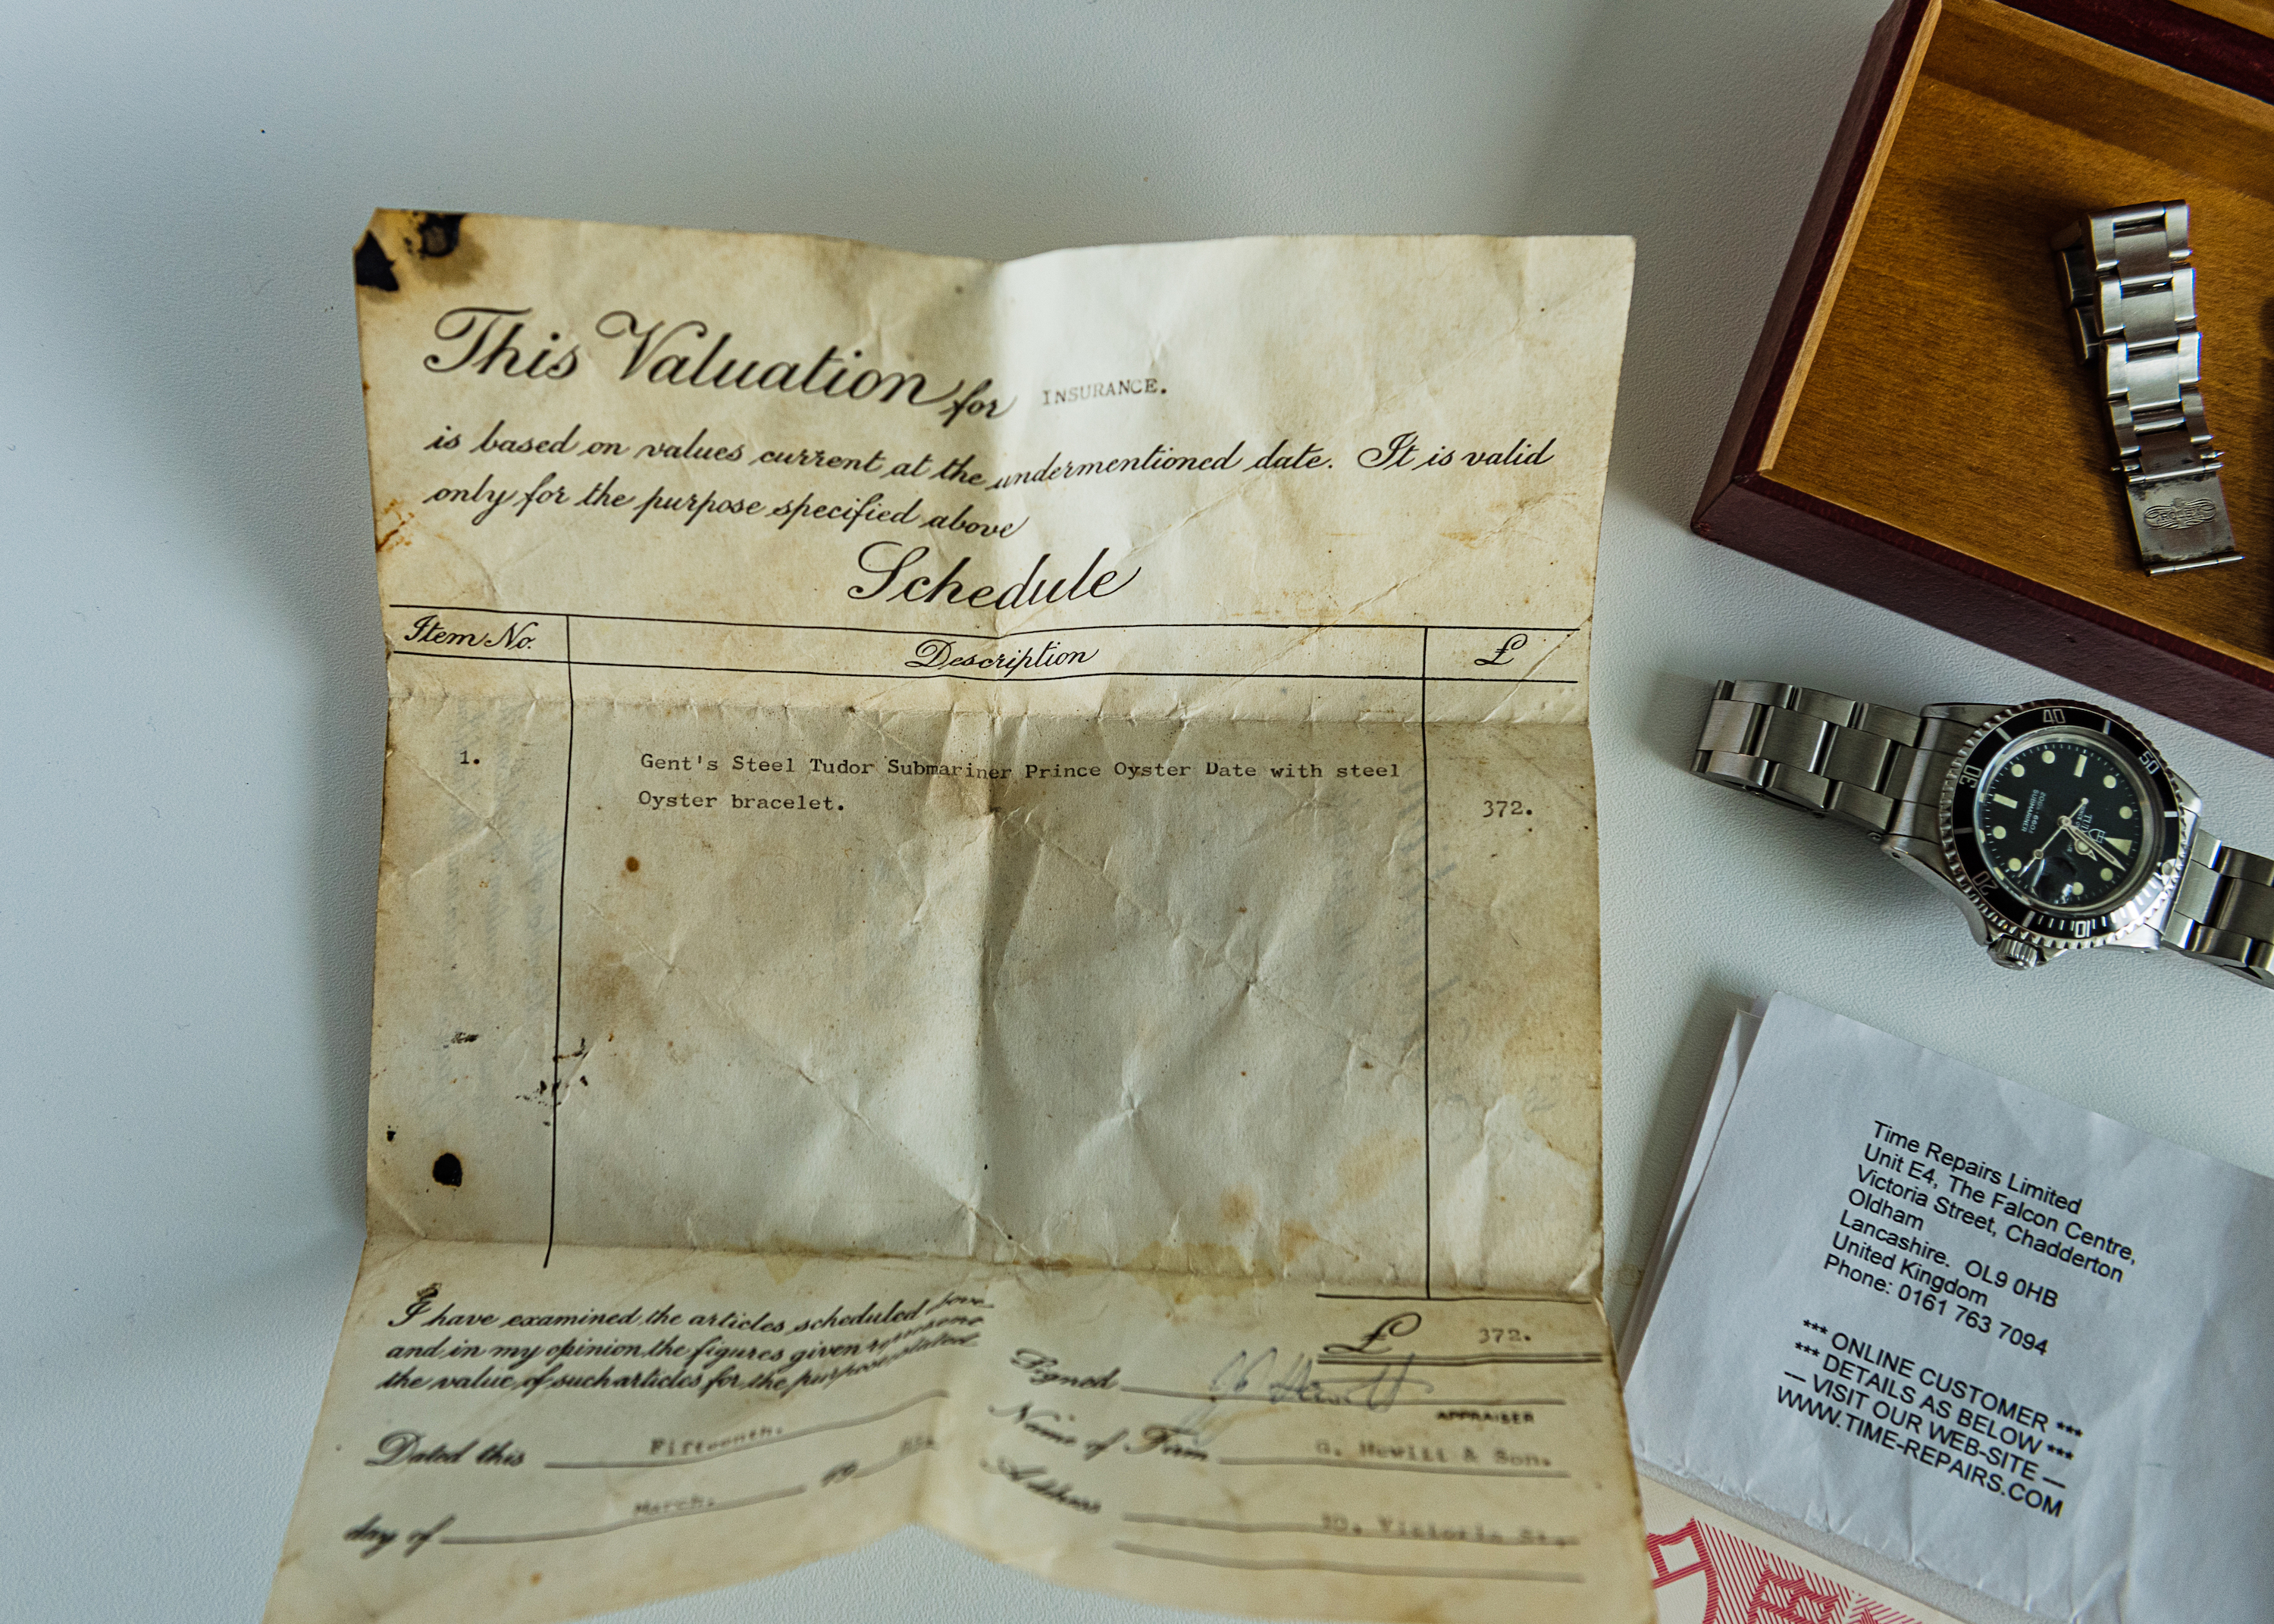 This Valuation for INSURANCE.
is based on values current at the undermentioned date. It is valid
only for the purpose specified above
Schedule
Item No. Description £
1. Gent's Steel Tudor Submariner Prince Oyster Date with steel
Oyster bracelet. 372.
£ 372.
I have examined the articles scheduled
and in my opinion the figures given represent
the value of such articles for the purpose stated
Dated this Fifteenth.
day of March. 19
Signed
APPRAISER
Name of Firm G. Hewitt & Son.
Address 30, Victoria St.,
ROLEX
40
50
30
20
10
TUDOR
SUBMARINER
Time Repairs Limited
Unit E4, The Falcon Centre,
Victoria Street, Chadderton
Oldham
Lancashire. OL9 0HB
United Kingdom
Phone: 0161 763 7094
*** ONLINE CUSTOMER ***
*** DETAILS AS BELOW ***
— VISIT OUR WEB-SITE —
WWW.TIME-REPAIRS.COM